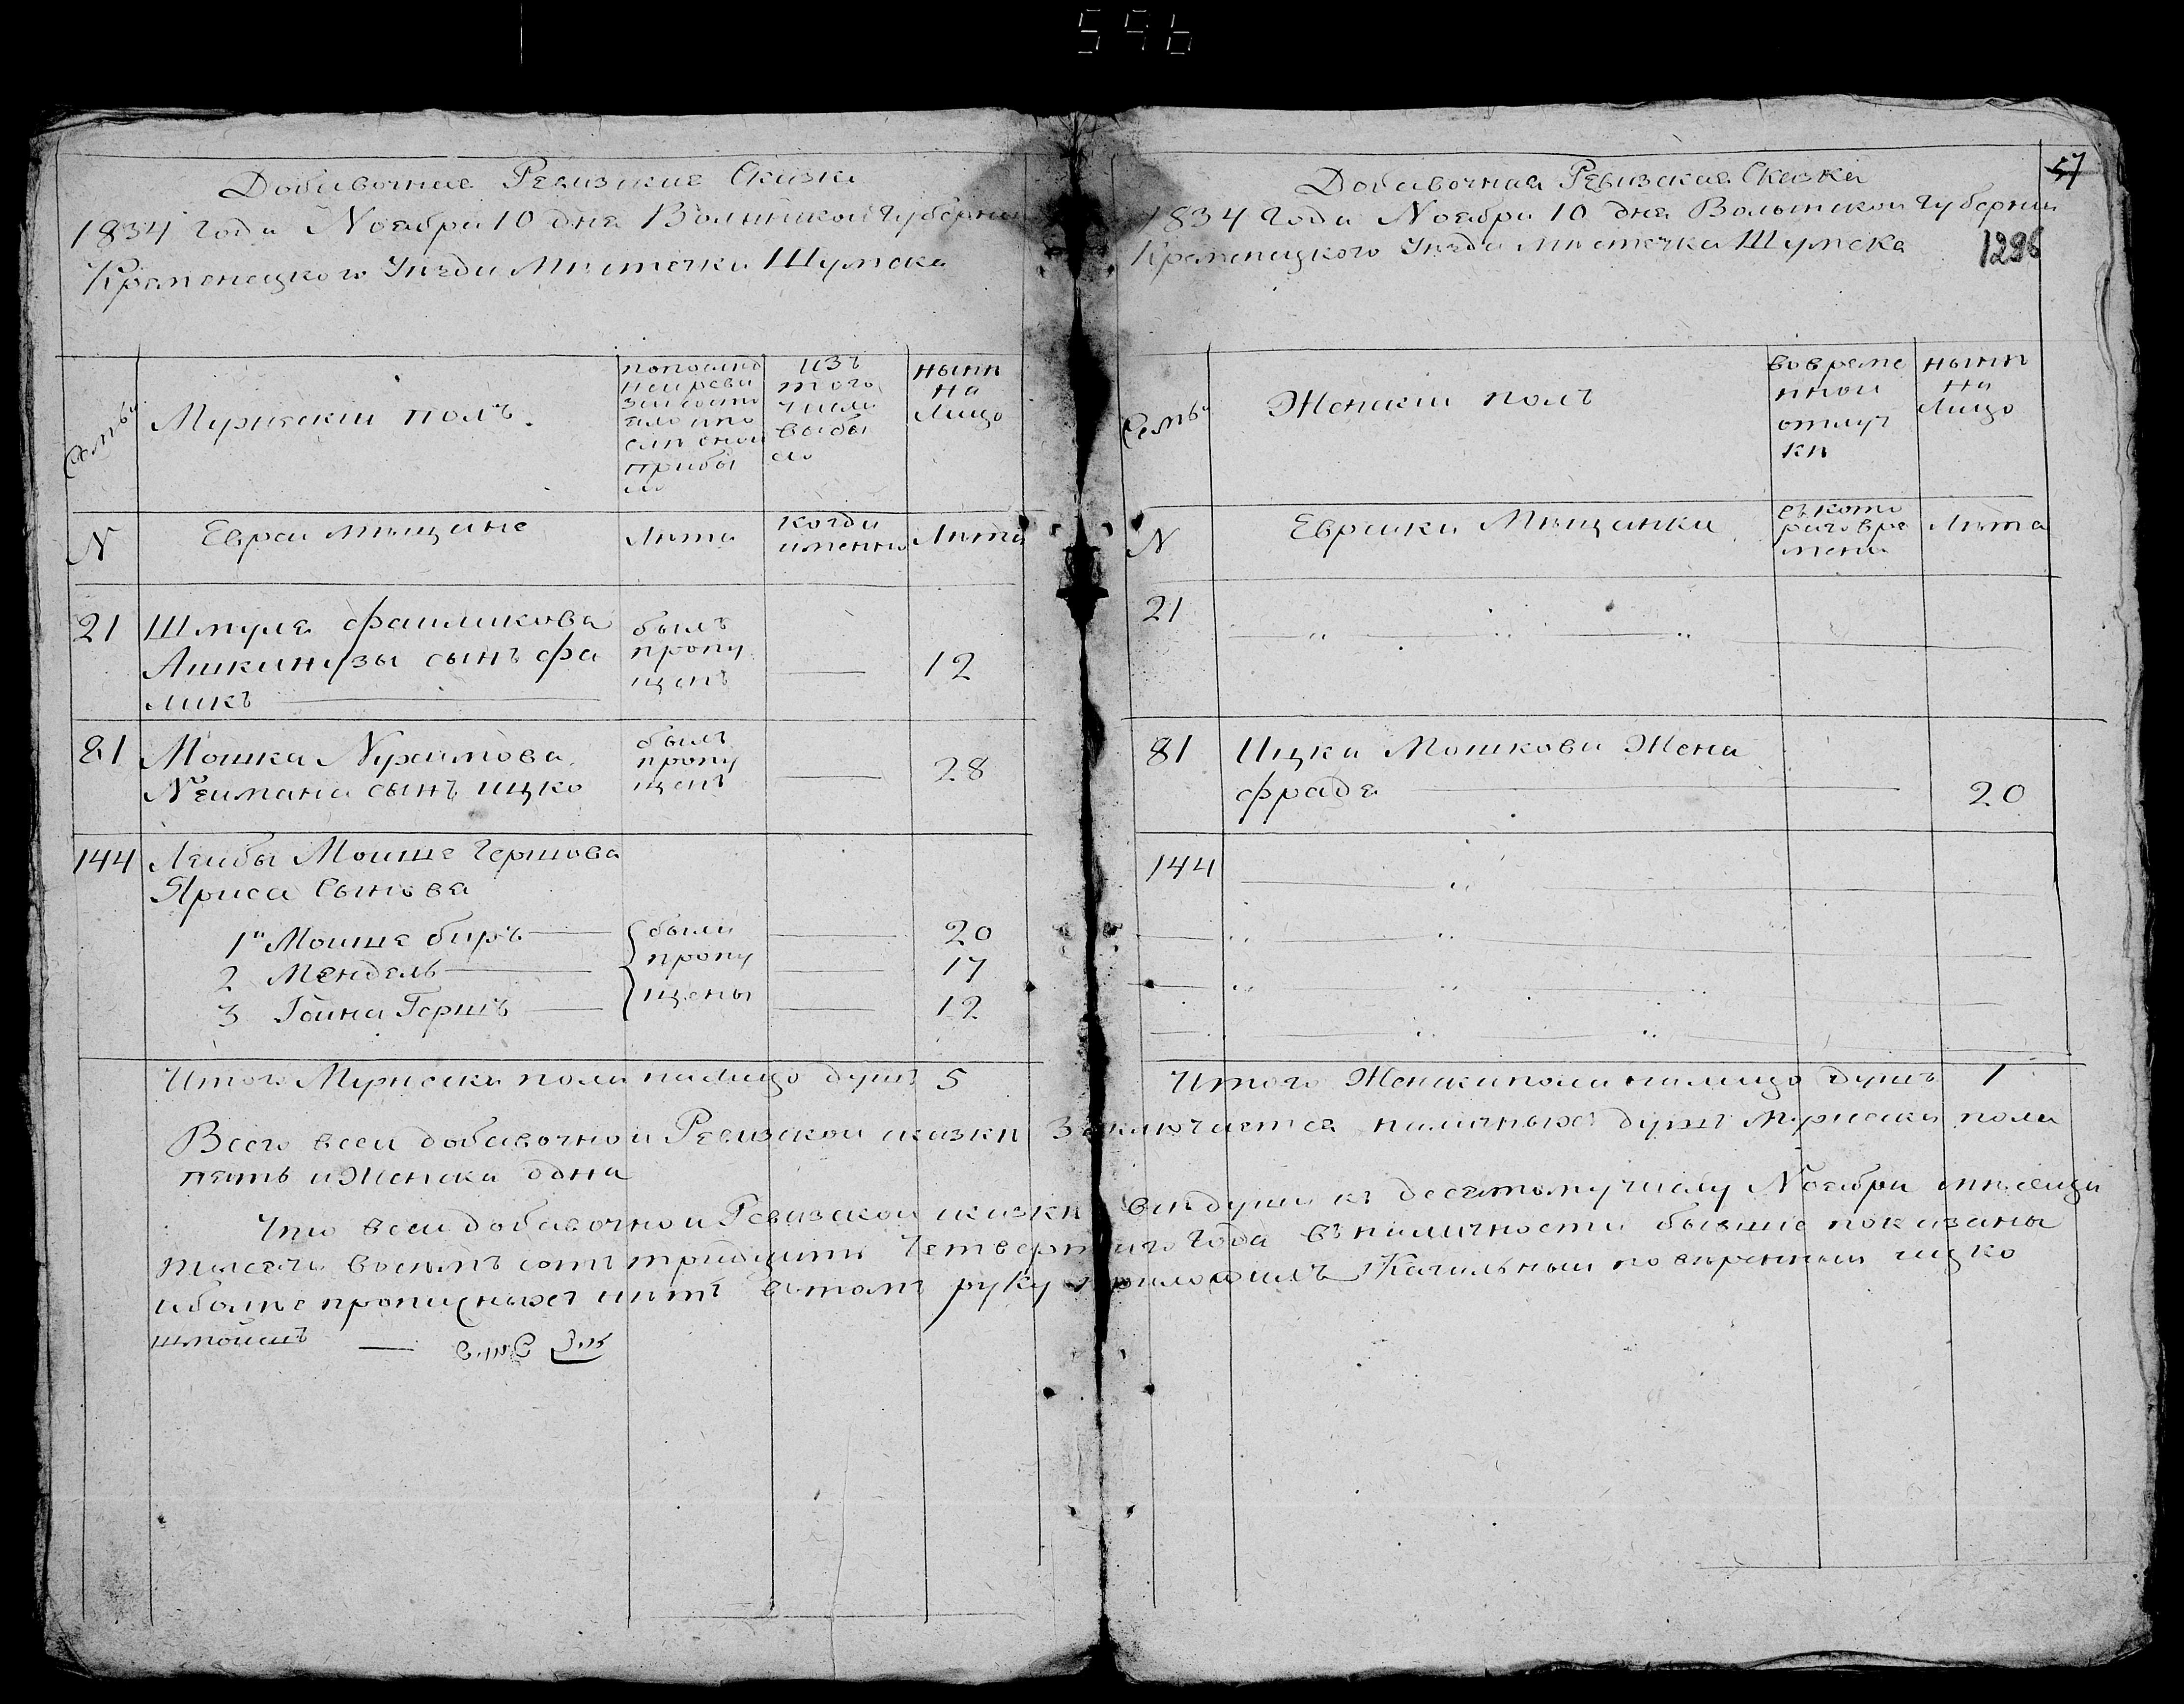 596
Добавочная Ревизская Сказка
1834 Года Ноября 10 дня Волынской Губернии
Кременецкого Уезда Местечка Шумска
Семьи
Мужеский полъ.
по послед
ней реви
зии состо
яло и по
сле оной
прибы
ло
изъ
того
числа
выбы
ло
ныне
на
лицо
N
Евреи мещане
Лета
когда
именно
Лета
21
Шмуля Файликова
Ашкинузы сынъ Фа
ликъ
былъ
пропу
щенъ
12
81
Мошка Нухимова
Неймана сынъ ицко
былъ
пропу
щенъ
28
144
Лейбы Моише Гершова
Яриса Сыновя
1й Моише беръ
были
20
2 Мендель
пропу
17
3 Гоина Гершъ
щены
12
Итого Мужеска пола налицо душъ 5
57
Добавочная Ревизская Сказка
1834 Года Ноября 10 дня Волынской Губернии
Кременецкого Уезда Местечка Шумска
1296
Семьи
Женский полъ
во време
нной
отлуч
ке
ныне
на
лицо
N
Еврейки Мещанки
съ кото
раго вре
мени
Лета
21
81
Ицки Мошкова Жена
Фрадя
20
144
Итого Женска пола налицо душъ 1
Всего в сей добавочной Ревизской сказке Заключается наличныхъ душъ Мужеска пола
пять и Женска одна
Что в сей добавочной Ревизской сказке все души къ десятому числу Ноября месяца
тысяча восемъ сотъ тридцать Четвертаго Года въ наличности бывшие показаны
и более прописныхъ нетъ въ томъ руку приложилъ Кагальный поверенный ицко
шмойшъ